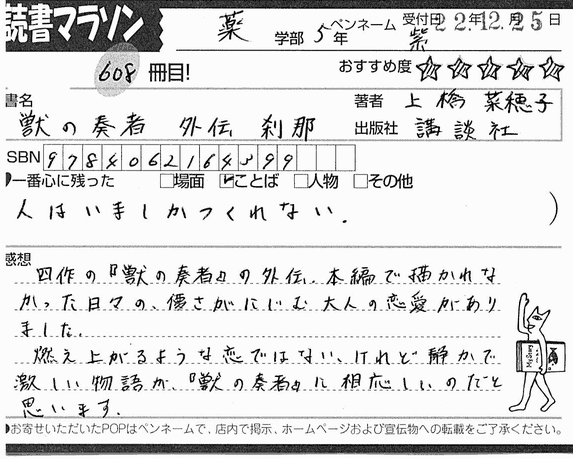 読書マラソン
薬 学部 5年 ペンネーム 紫 受付日22.年12.月25日
608 冊目! おすすめ度 ☆☆☆☆☆
書名 獣の奏者 外伝 刹那 著者 上橋 菜穂子
出版社 講談社
SBN 9784062164399
一番心に残った □場面 ☑ことば □人物 □その他
人はいましかつくれない. )
感想
四作の『獣の奏者』の外伝. 本編で描かれな
かった日々の、儚さがにじむ大人の恋愛があり
ました.
燃え上がるような恋ではない、けれど静かで
激しい物語が、『獣の奏者』に相応しいのだと
思います.
Mystery
●お寄せいただいたPOPはペンネームで、店内で掲示、ホームページおよび宣伝物への転載をご了承ください。